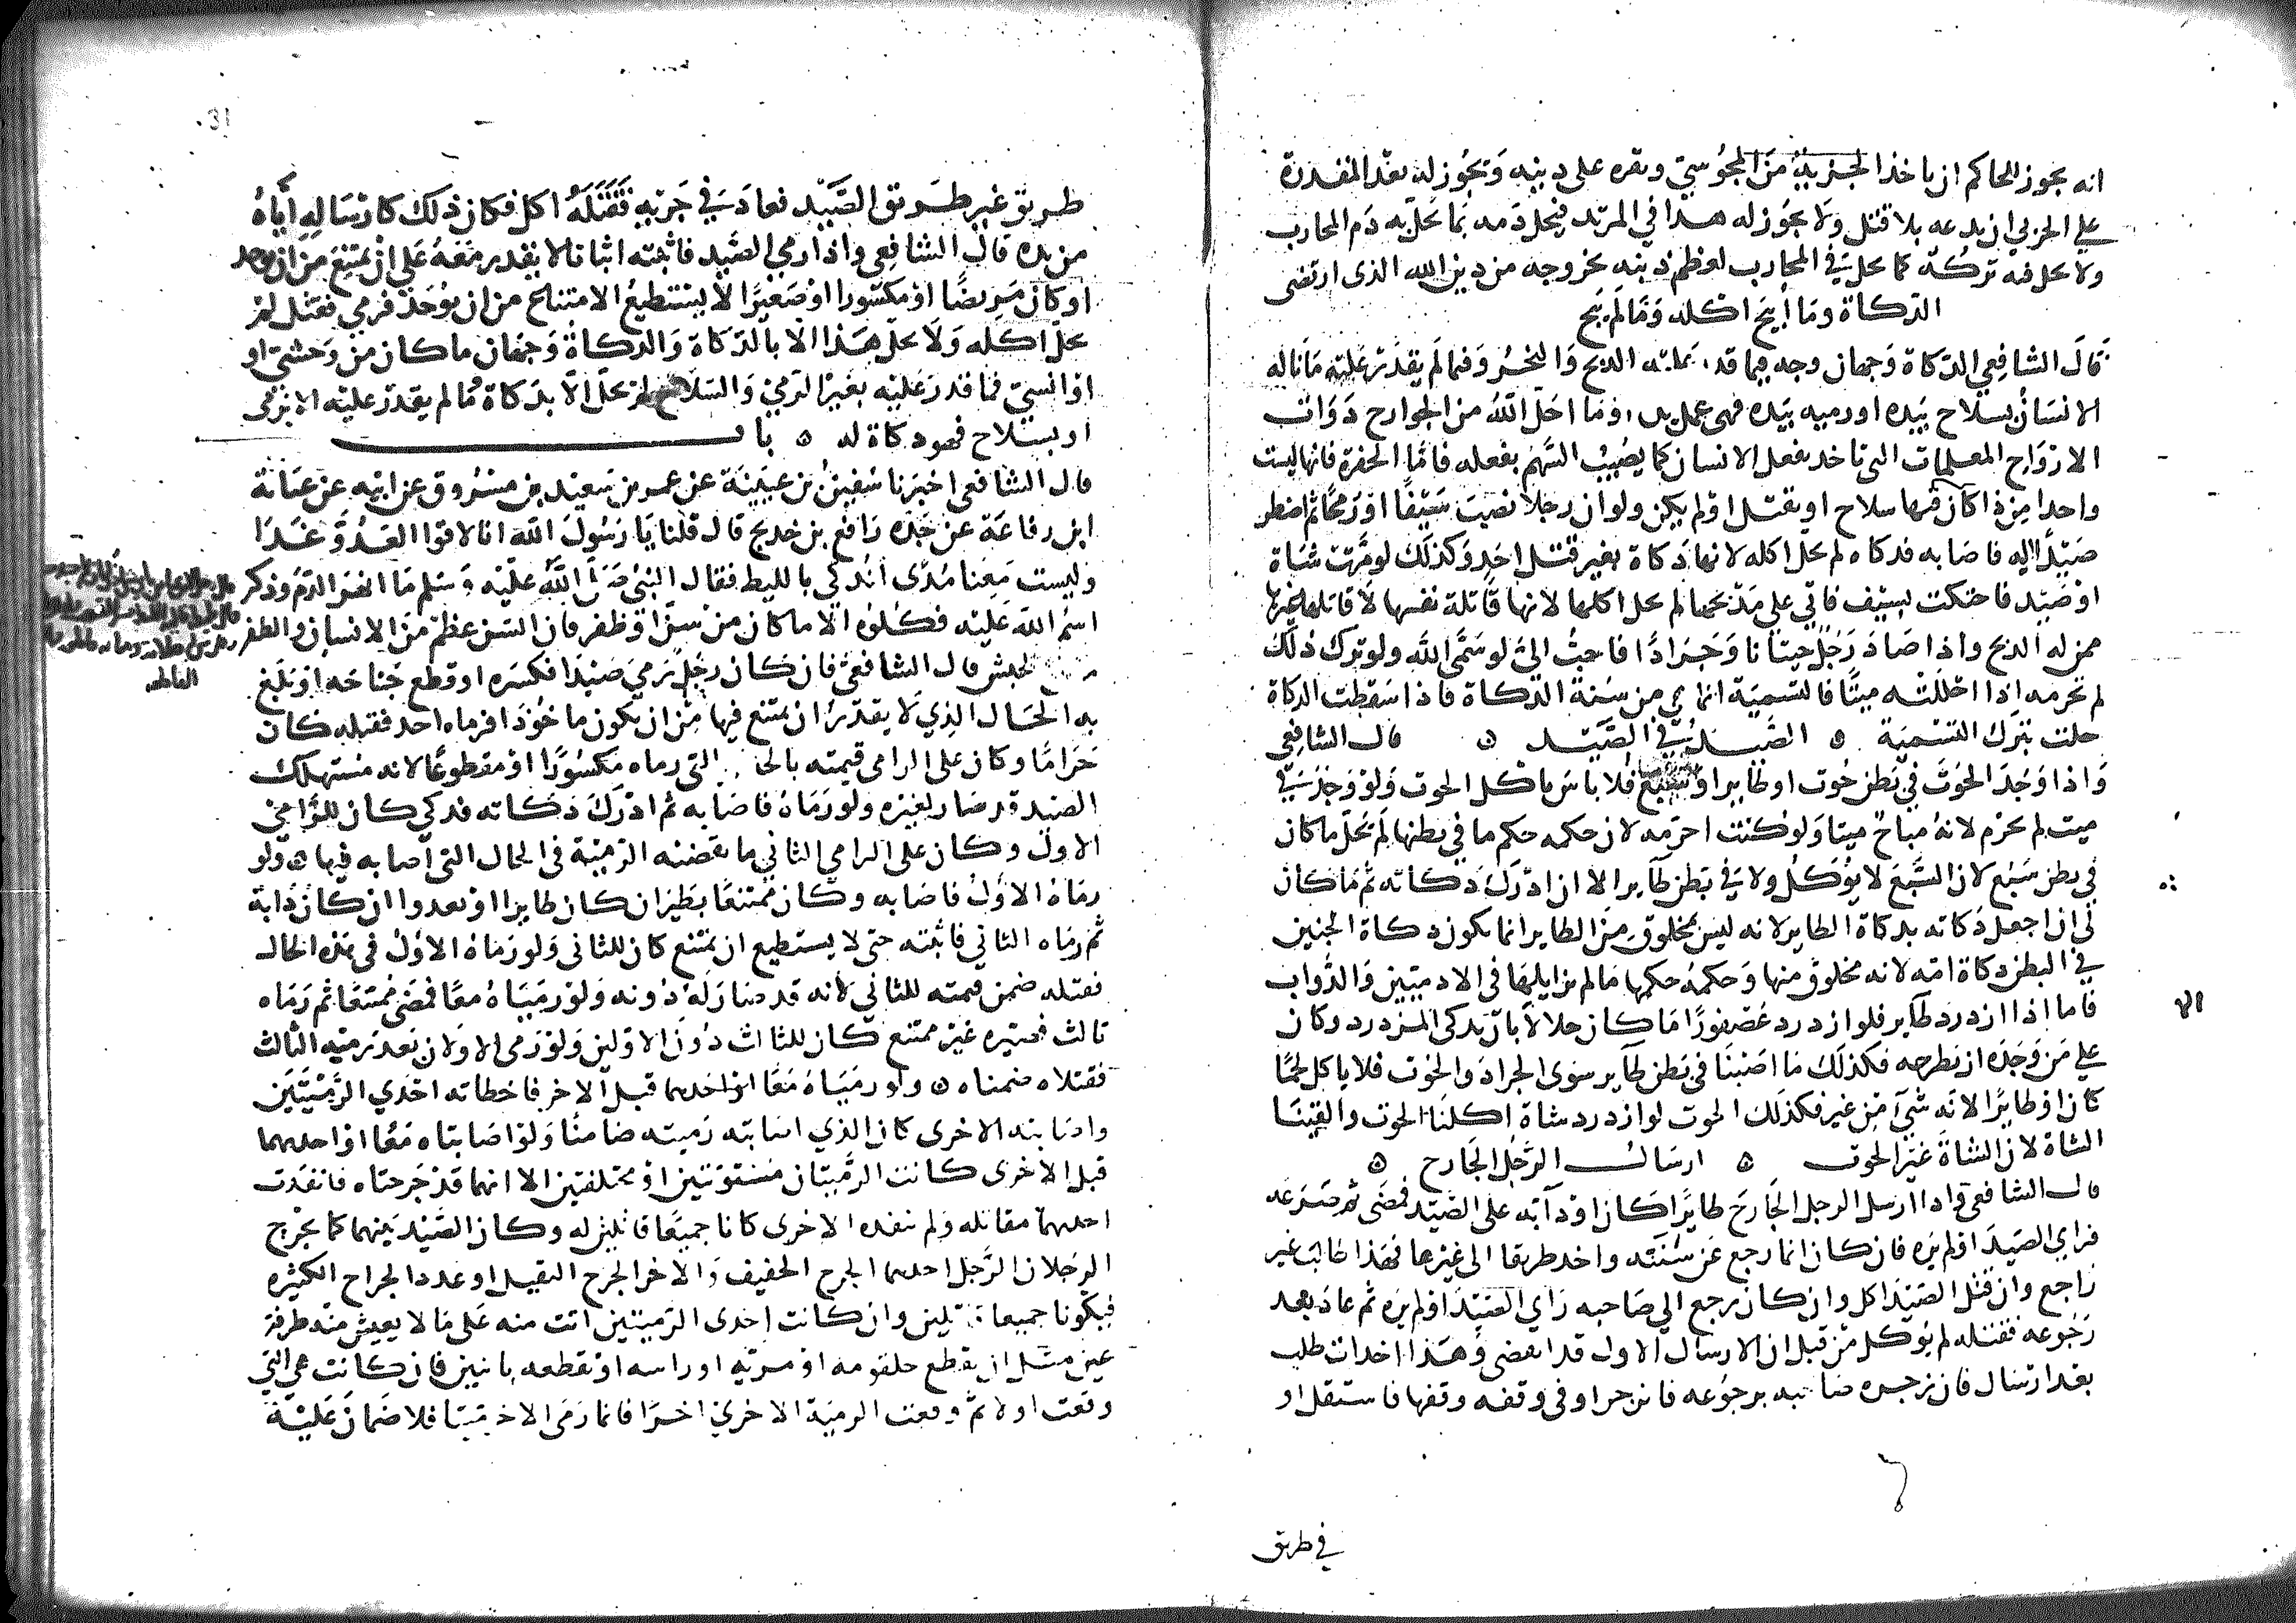 انه يجوز للحاكم ان ياخذ الجزية من المجوسي ويقره على دينه ويجوز له بعد المقدرة
على الحربي ان يدعه بلا قتل ولا يجوز له هذا في المرتد فيحل دمه بما يحل به دم المحارب
ولا يحل فيه تركه كما يحل في المحارب لعظم ذنبه بخروجه من دين الله الذى ارتضى
الذكاة وما أبيح اكله وما لم يبح
قال الشافعي الذكاة وجهان وجه فيما قدر عليه الذبح والنحر وفيما لم يقدر عليه ما ناله
الانسان بسلاح بيده او رميه بيده فهى عمل يده وما احل الله من الجوارح ذوات
الارواح المعلمات التى تاخذ بفعل الانسان كما يصيب السهم بفعله فاما الحفرة فانها ليست
واحدا من ذا كان فيها سلاح او يقتل او لم يكن ولو ان رجلا نصب سيفا او رمحا ثم اضطر
صيدا اليه فاصابه فذكاه لم يحل اكله لانها ذكاة بغير قتل احد وكذلك لو مرت شاة
او صيد فاحتكت بسيف فاتي على مذبحها لم يحل اكلها لانها قاتلة نفسها لا قاتلها غيرها
ممن له الذبح واذا صاد رجل حيتانا وجرادا فاحب الي لو سمى الله ولو ترك ذلك
لم نحرمه اذا احللته ميتا فالتسمية انما هي من سنة الذكاة فاذا سقطت الذكاة
حلت بترك التسمية ۞ الصيد في الصيد ۞ قال الشافعي
واذا وجد الحوت في بطن حوت او طاير او سبع فلا باس باكل الحوت ولو وجد في
ميت لم يحرم لانه مباح ميتا ولو كنت احرمه لان حكمه حكم ما في بطنها لم يحل ما كان
في بطن سبع لان السبع لا يؤكل ولا في بطن طاير الا ان ادرك ذكاته ثم ما كان
لي ان اجعل ذكاته بذكاة الطاير لانه ليس بمخلوق من الطاير انما يكون ذكاة الجنين
في البطن ذكاة امه لانه مخلوق منها وحكمه حكمها ما لم يزايلها في الادميين والدواب
فاما اذا ازدرد طاير فلو ازدرد عصفورا ما كان حلالا بان يذكى المزدرد وكان
الا
على من وجده ان يطرحه فكذلك ما اصبنا في بطن طاير سوى الجراد والحوت فلا ياكل لحما
كان او طايرا لانه شيء من غيره فكذلك الحوت لو ازدرد شاة اكلنا الحوت والقينا
الشاة لان الشاة غير الحوت ۞ ارسال الرجل الجارح ۞
قال الشافعي واذا ارسل الرجل الجارح طايرا كان او دابة على الصيد فمضى ثم صرعه
فراى الصيد او لم يره فان كان انما رجع عن سننه واخذ طريقا الى غيرها فهذا طالب غير
راجع وان قتل الصيد اكل وان كان رجع الى صاحبه راى الصيد او لم يره ثم عاد بعد
رجوعه فقتله لم يؤكل من قبل ان الارسال الاول قد انقضى وهذا احداث طلب
بعد ارسال فان زجره صاحبه برجوعه فانزجر او في وقفه وقفها فاستقل او
في طريق
طريق غير طريق الصيد فعاد في جريه فقتله اكل فكان ذلك كارساله اياه
من يده قال الشافعي واذا رمي الصيد فاثبته اثباتا لا يقدر معه على ان يمتنع من ان يوخذ
او كان مريضا او مكسورا او صغيرا لا يستطيع الامتناع من ان يوخذ فرمي فقتل لم
يحل اكله ولا يحل هذا الا بالذكاة والذكاة وجهان ما كان من وحشي او
او انسي فما قدر عليه بغير الرمي والسلاح لم يحل الا بذكاة وما لم يقدر عليه الا برمى
او بسلاح فهو ذكاة له ۞ باب
قال الشافعى اخبرنا سفين بن عيينة عن عمر بن سعيد بن مسروق عن ابيه عن عباية
ابن رفاعة عن جده رافع بن خديج قال قلنا يا رسول الله انا لاقوا العدو غدا
وليست معنا مدى انذكي بالليط فقال النبي صلى الله عليه وسلم ما انهر الدم وذكر
اسم الله عليه فكلوه الا ما كان من سن او ظفر فان السن عظم من الانسان والظفر
الحبش قال الشافعي فان كان رجل رمى صيدا فكسره او قطع جناحه او بلغ
به الحال الذي لا يقدر ان يمتنع فيها من ان يكون ماخوذا فرماه احد فقتله كان
حراما وكان على الرامى قيمته بالحال التى رماه مكسورا او مقطوعا لانه مستهلك
الصيد قد صار لغيره ولو رماه فاصابه ثم ادرك ذكاته فذكي كان للرامي
الاول وكان على الرامي الثاني ما نقصته الرمية في الحال التى اصابه فيها ۞ ولو
رماه الاول فاصابه وكان ممتنعا بطيران كان طايرا او بعدوا ان كان دابة
ثم رماه الثاني فاثبته حتى لا يستطيع ان يمتنع كان للثانى ولو رماه الاول في هذه الحال
فقتله ضمن قيمته للثاني لانه قد صار له دونه ولو رمياه معا فمضى ممتنعا ثم رماه
ثالث فصيره غير ممتنع كان للثالث دون الاولين ولو رمى الاولان بعد رمية الثالث
فقتلاه ضمناه ۞ ولو رمياه معا او احدهما قبل الاخر فاخطاته احدى الرميتين
واصابته الاخرى كان الذي اصابته رميته ضامنا ولو اصابتاه معا او احدهما
قبل الاخرى كانت الرميتان مستوتين او مختلفتين الا انهما قد جرحتاه فانفذت
احدهما مقاتله ولم تنفذه الاخرى كانا جميعا قاتلين له وكان الصيد بينهما كما يجرح
الرجلان الرجل احدهما الجرح الخفيف والاخر الجرح الثقيل او عدد الجراح الكثيره
فيكونا جميعا قاتلين وان كانت احدى الرميتين اتت منه على ما لا يعيش منه طرفة
عين مثل ان يقطع حلقومه او مريه او راسه او نقطعه باثنين فان كانت هي التي
وقعت اولا ثم وقعت الرمية الاخرى اخرا فانما رمى الاخر ميتا فلا ضمان عليه